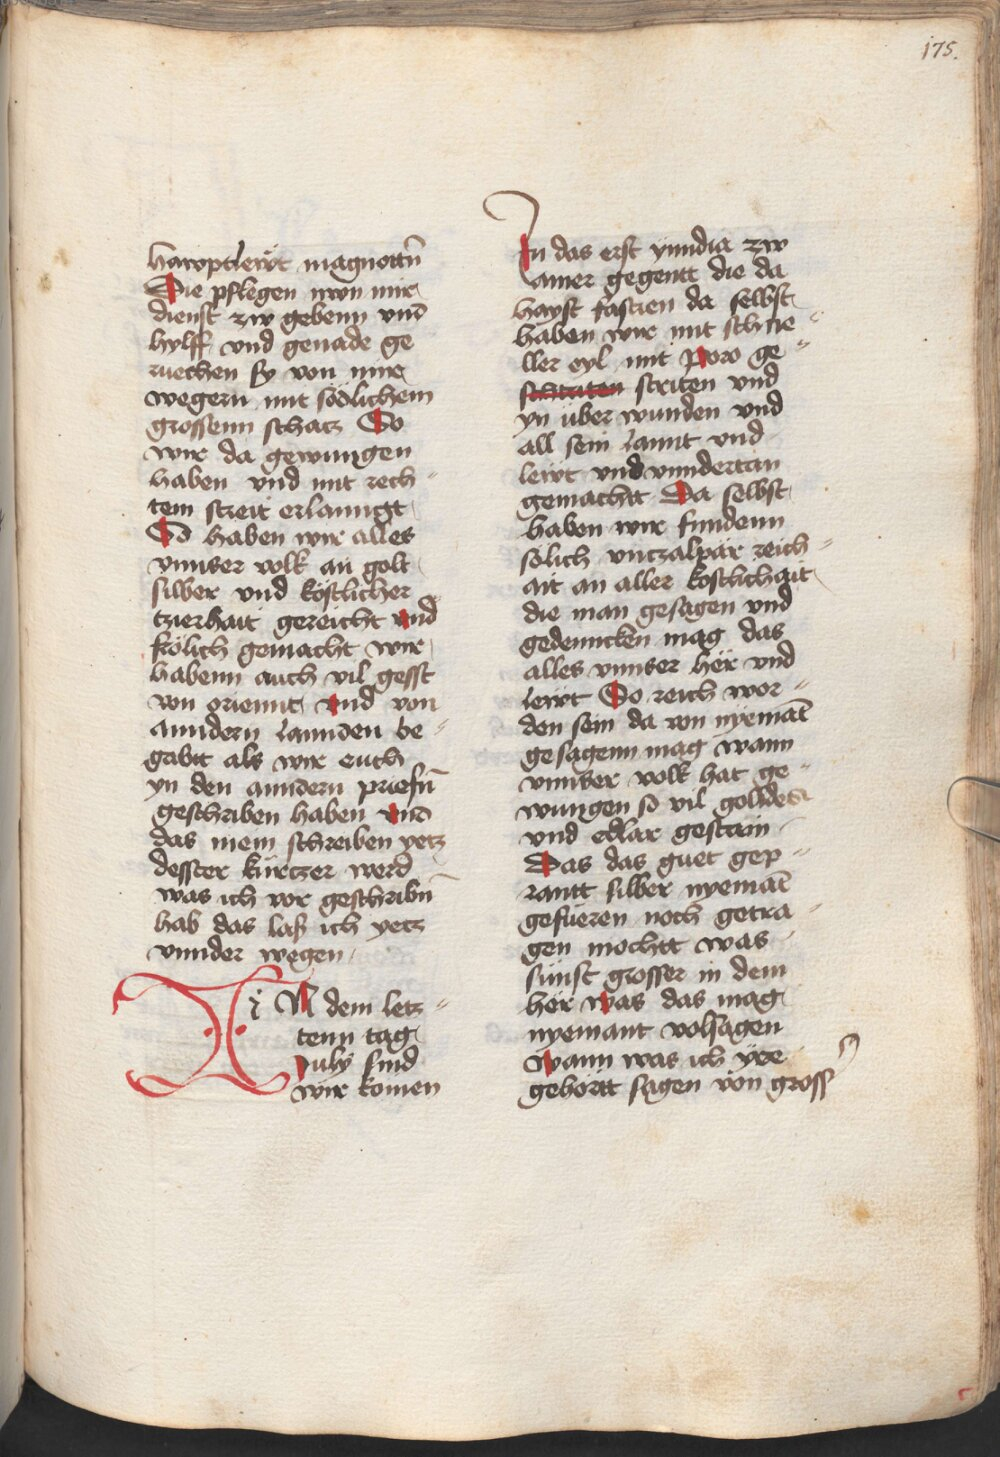 175.
hawptlewt magnottn̄
Die pflegen nwn mir
dienst zw gebenn vnd̄
hylff vnd genade ge
ruechen sy von mir
wegern mit södlichem
grossenn schatz Do
wir da gewungen
haben vnd mit rech„
tem streit erlanngt
So haben wir alles
vnnser volk an golt
silber vnd köstlicher
tzierhait gereicht vnd
frölich gemacht wir
habenn auch vil gesst
von oriennt vnd von
anndern lannden be„
gabtt als wir euch
yn den anndern priefn̄
geschriben haben vnd̄
das mein schreiben yetz
desster kürczer werd
was ich vor geschribn̄
hab das laß ich yetz
vnnder wegen
I i N dem letz„
tenn tag
July sind
wir komen
In das erst ynndia zw
ainer gegentt die da
hayst fascien da selbst
haben wir mit schne„
ller eyl mit Poro ge„
striten vnd
yn über wunden vnd
all sein lannt vnd
lewt vnd vnndertan
gemachtt Da selbst
haben wir fundenn
sölich vnczalpär reich„
ait an aller kostlichait
die man gesagen vnd
gedenncken mag das
alles vnnser her vnd
lewt So reich wor„
den sein da von nyemāt
gesagenn mag wann
vnnser volk hat ge„
wungen so vil golldes
vnd edlar gestain
Das das guet gep„
rantt silber nyemāt
gefüeren noch getra„
gen mochtt was
sünst grosser in dem
her was das mag
nyemant volsagen
Wann was ich yre
gehörtt sagen von gross